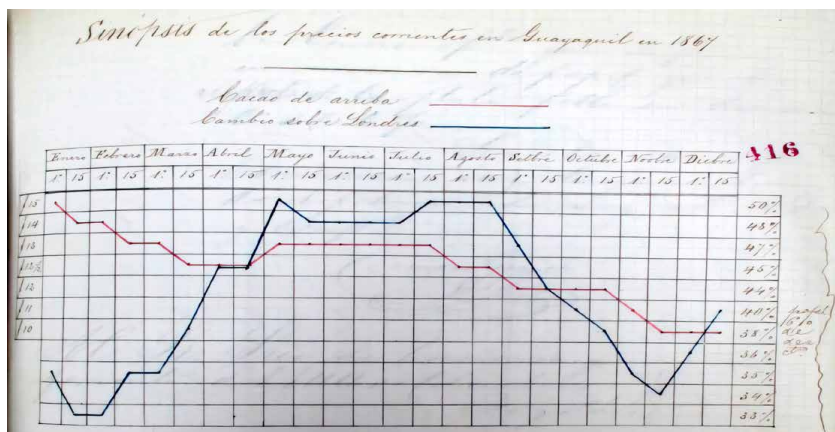 Sinópsis de los precios corrientes en Guayaquil en 1867
Cacao de arriba
Cambio sobre Londres
416
Enero Febrero Marzo Abril Mayo Junio Julio Agosto Setbre Octubre Novbre Dicbre
1º 15 1º 15 1º 15 1º 15 1º 15 1º 15 1º 15 1º 15 1º 15 1º 15 1º 15 1º 15
15 50%
14 48%
13 47%
12½ 45%
12 44%
11 40%
10 38%
36%
35%
34%
33%
papel
6%
de